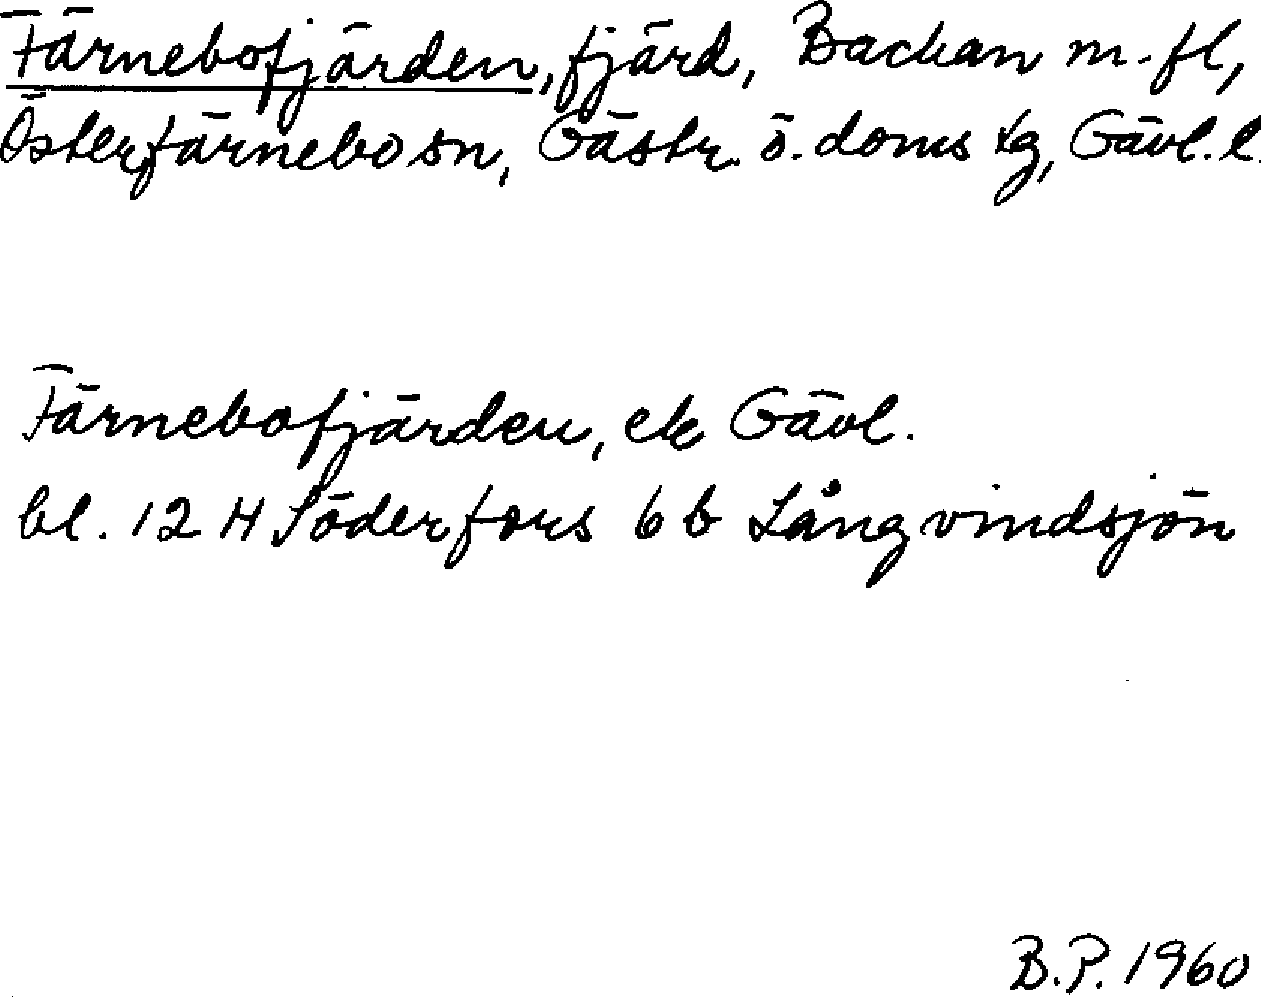 Färnebofjärden, fjärd, Backan m. fl,
Österfärnebo sn, Gästr. ö. doms tg, Gävl. l.
Färnebofjärden, ek Gävl.
bl. 12 H Söderfors 6 b Långvindsjön
B.P. 1960